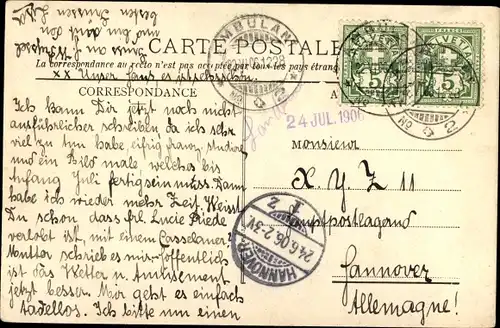 besten Grüssen
und Du auch von
CARTE POSTALE
AMBULANT
La correspondance au recto n'est pas acceptée par tous les pays étrangers
XX Unser Haus
CORRESPONDANCE
24 JUL. 1906
Ich kann Dir jetzt noch nicht
ausführlicher schreiben da ich sehr
viel zu tun habe, eifrig franz. studiere
und ein Bild male welches bis
Anfang Juli fertig sein muss. Dann
habe ich wieder mehr Zeit. Weisst
Du schon dass Frl. Lucie Riede
verlobt ist, mit einem Casselaner?
Mutter schrieb es mir. Hoffentlich
ist das Wetter u. Amusement
jetzt besser. Mir geht es einfach
tadellos. Ich bitte um einen
Monsieur
X. Y. Z 11
Hauptpostlagernd
Hannover
Allemagne!
HANNOVER
24.6.06. 2-3V
1 z
5
5